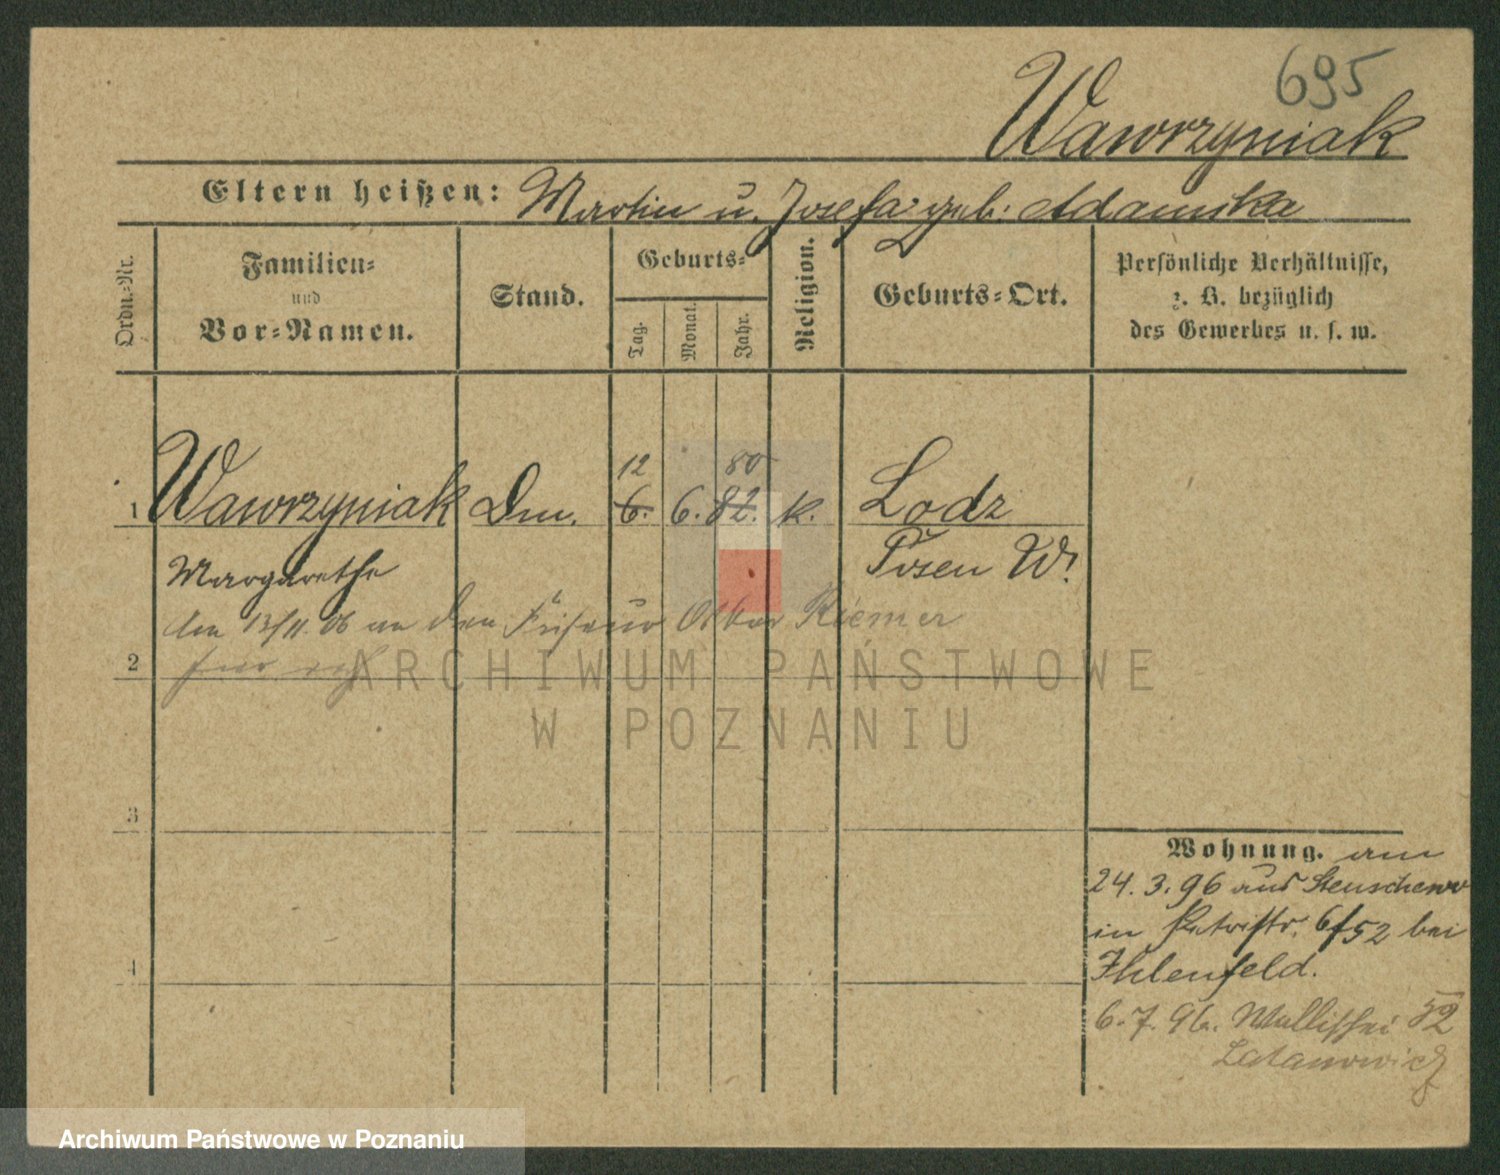 695
Wawrzyniak
Eltern heißen: Martin u. Josefa geb. Adamska
Ordn.-Nr.
Familien-
und
Vor-Namen.
Stand.
Geburts-
Tag.
Monat.
Jahr.
Religion.
Geburts-Ort.
Persönliche Verhältnisse,
z. B. bezüglich
des Gewerbes u. s. w.
12 80
1 Wawrzyniak Dm. 6. 6. 82. k. Lodz
Margarethe Posen W.
den 13/11. 06 an den Friseur Oskar Riemer
2
ARCHIWUM PAŃSTWOWE
W POZNANIU
3
4
Wohnung. am
24. 3. 96 aus
in Petristr. 6/52 bei
Ihlenfeld.
6. 7. 96. Wallischei 52
Archiwum Państwowe w Poznaniu